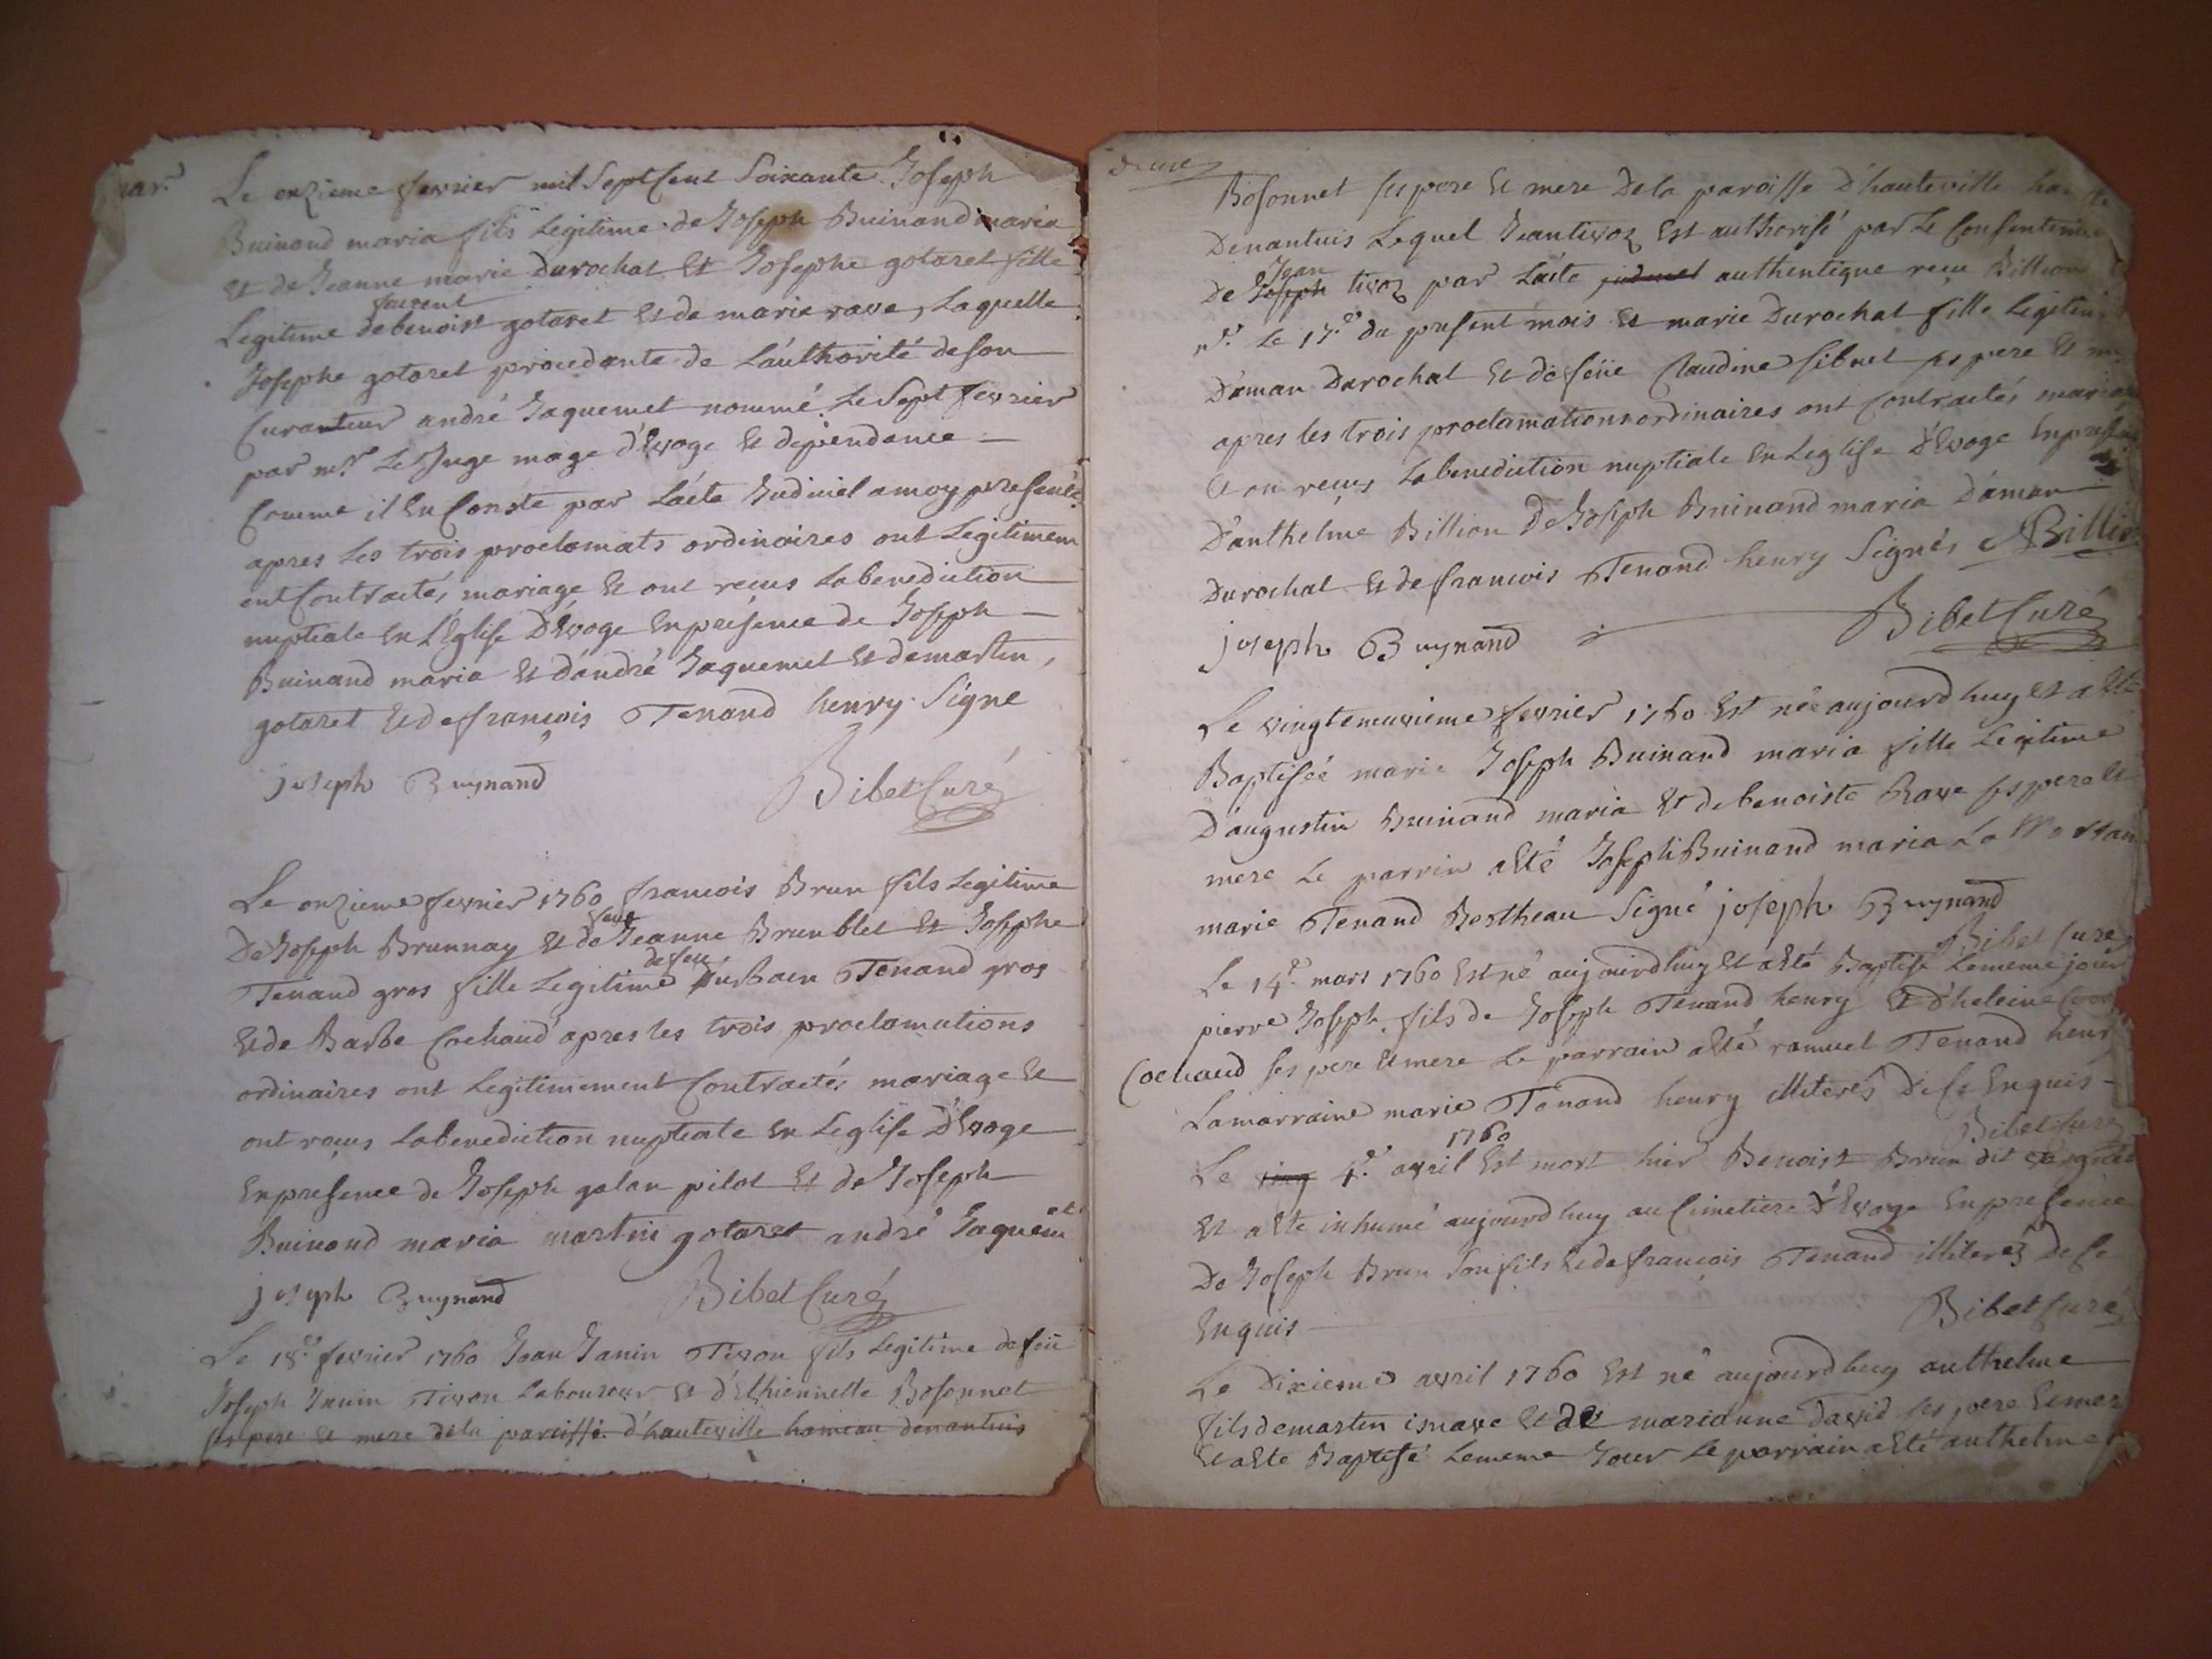 mar.
Le onzieme fevrier mil Sept Cent Soixante Joseph
Buinand maria fils Legitime de Joseph Buinand maria
et de Jeanne marie Durochat Et Josephe gotaret fille
Legitime de benoist gotaret Et de marie rave, Laquelle
Josephe gotaret procedante de L'authorité de son
Curateur andré Jaquemet nommé Le Sept fevrier
par mr. Le Juge mage d'Evoge Et dependance
Comme il En Conste par L'acte Judiciel a moy presenté
apres Les trois proclamats ordinaires ont Legitimem
ent Contractés mariage Et ont recus La benediction
nuptiale En L'Eglise D'Evoge En presence de Joseph
Buinand maria Et d'andré Jaquemet Et de martin,
gotaret Et de françois Tenand henry Signe
joseph Buynand
Bibet Curé
Le onzieme fevrier 1760 francois Brun fils Legitime
De Joseph Brunnay Et de feue Jeanne Brun blet Et Josephe
Tenand gros fille Legitime de feu urbain Tenand gros
Et de Barbe Cochaud apres les trois proclamations
ordinaires ont Legitimement Contractés mariage Et
ont recus La benediction nuptiale En L'eglise D'Evoge
En presence de Joseph galan pilot Et de Joseph
Buinand maria martin gotaret andré Jaquemet
joseph Buynand
Bibet Curé
Le 18e. fevrier 1760 Jean Janin Tivon fils Legitime de feü
Joseph Janin Tivon Laboureur Et d'Ethiennette Bosonnet
ses pere Et mere de la paroisse d'hauteville hameau denantuis
Bosonnet ses pere Et mere De la paroisse D'hauteville
Denantuis Lequel Jean tivoz Est authorisé par Le Consentement
De Joseph Jean tivoz par L'acte authentique reçu Billion
Le 17e. du present mois Et marie Durochat fille Legitime
D'aman Durochat Et de feüe Claudine sibuet ses pere Et
apres les trois proclamations ordinaires ont Contractés mariage
Et on reçus La benediction nuptiale En Leglise d'Evoge En presence
D'anthelme Billion De Joseph Buinand maria D'aman
Durochat Et de francois Tenand henry Signés Billion
joseph Buynand
Bibet Curé
Le vingt neuvieme fevrier 1760 Est née aujourd huy Et a Eté
Baptisée marie Joseph Buinand maria fille Legitime
D'augustin Buinand maria Et de benoiste Rave ses pere Et
mere Le parrin a Eté Joseph Buinand maria La
marie Tenand Bertheau Signé joseph Buynand
Bibet Curé
Le 14e. mars 1760 Est né aujourdhuy Et a Eté Baptisé Lememe jour
pierre Joseph fils de Joseph Tenand henry Et D'heleine
Cochaud ses pere Et mere Le parrain a Eté ramuel Tenand henry
La marraine marie Tenand henry illiterés De Ce Enquis
Bibet Curé
Le cinq 4e. avril 1760 Est mort hier Benoist Brun dit
Et a Ete inhumé aujourdhuy au Cimetiere d'Evoge En presence
De Joseph Brun Son fils Et de francois Tenand illiterez De Ce
Enquis
Bibet Curé
Le Dixieme avril 1760 Est né aujourdhuy anthelme
fils de martin isnave Et de marianne David ses pere Et mere
Et a Ete Baptisé Lememe Jour Le parrain a Eté anthelme